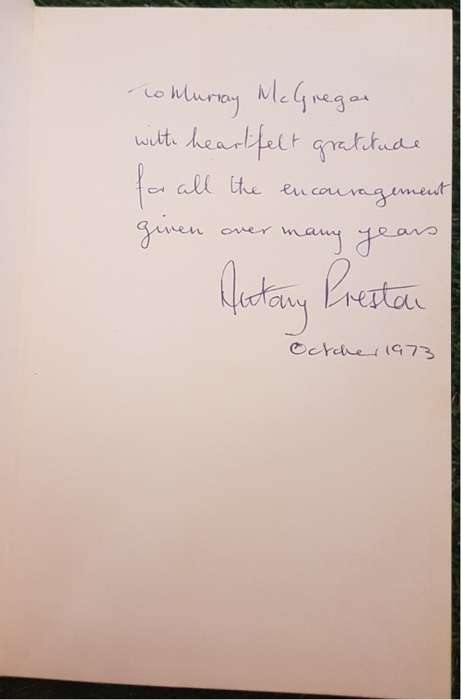 To Murray McGregor
with heartfelt gratitude
for all the encouragement
given over many years
Antony Preston
October 1973